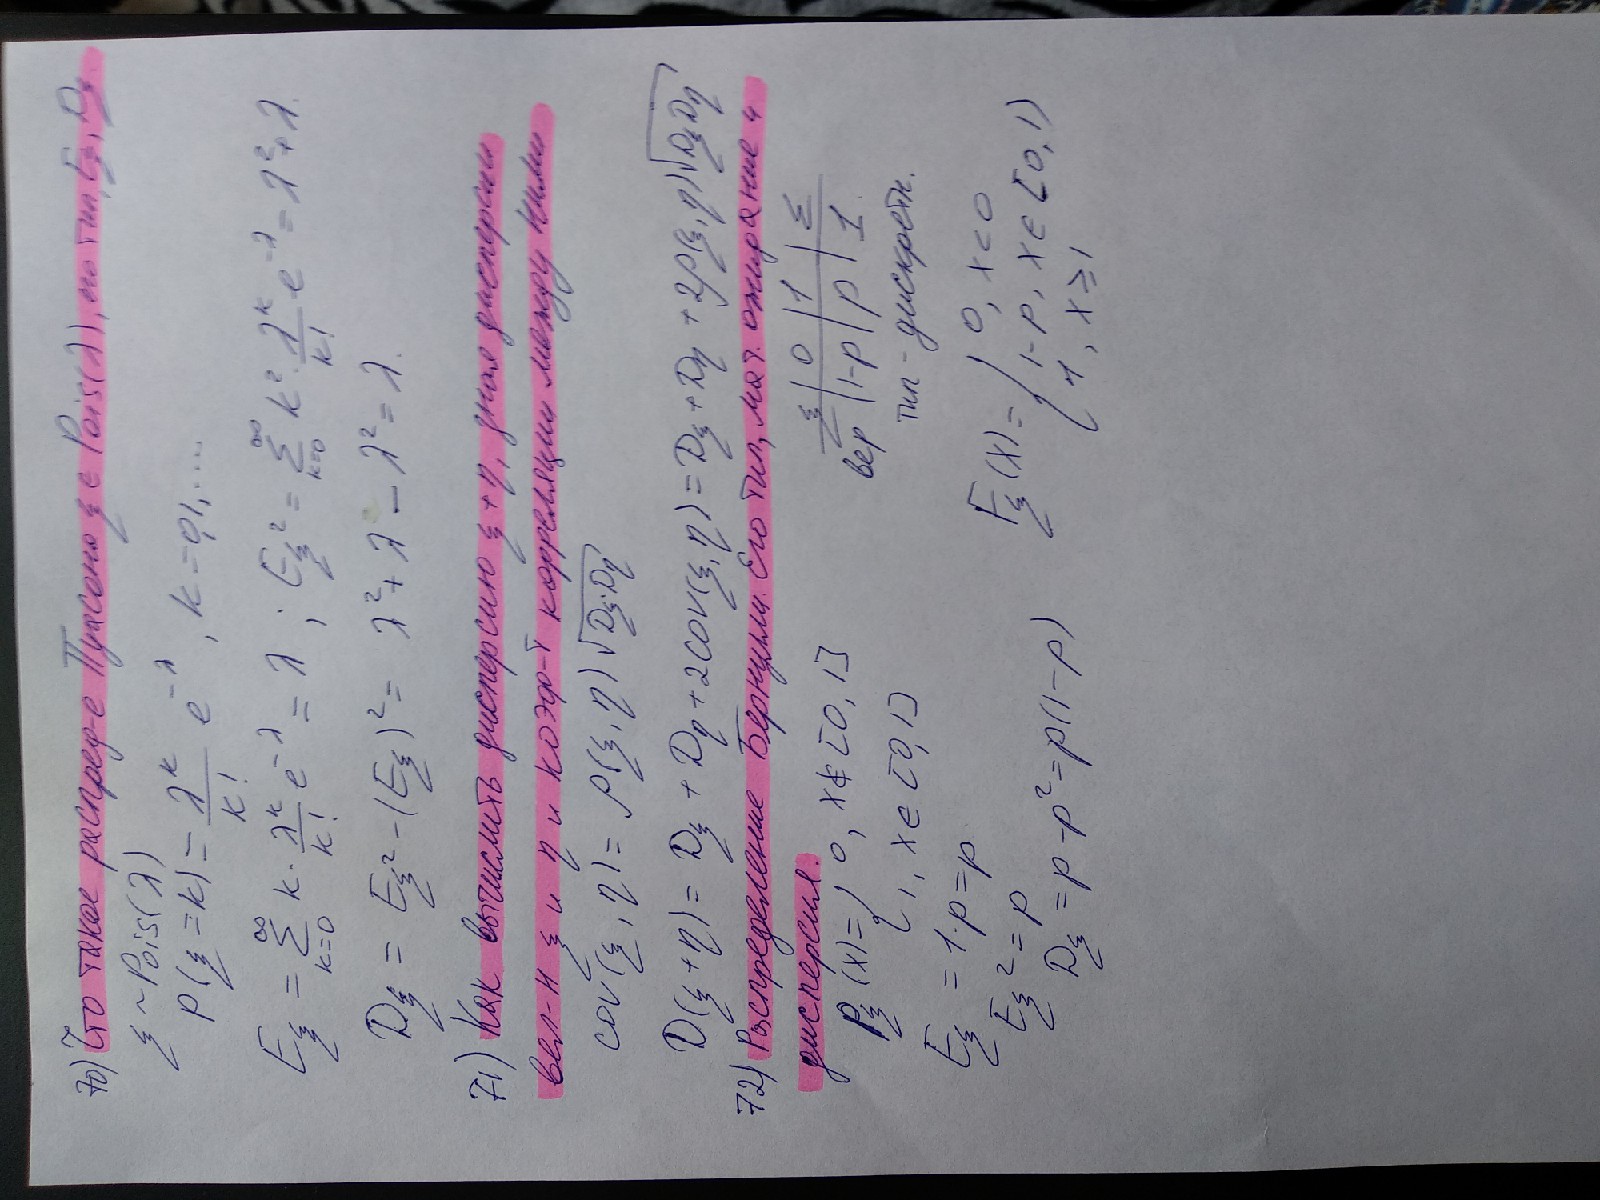 70) Что такое распред-е Пуассона ξ ∈ Pois(λ), его тип, Eξ, Dξ.
ξ ~ Pois(λ)
P(ξ=k) = λ^k/k! e^-λ, k=0,1,....
Eξ = ∑_{k=0}^∞ k · λ^k/k! e^-λ = λ ; Eξ² = ∑_{k=0}^∞ k² · λ^k/k! e^-λ = λ²+λ.
Dξ = Eξ² - (Eξ)² = λ²+λ - λ² = λ.
71) Как вычислить дисперсию ξ+η, зная дисперсии
вел-н ξ и η и коэф-т корреляции между ними
cov(ξ,η) = ρ(ξ,η)√(Dξ·Dη)
D(ξ+η) = Dξ + Dη + 2cov(ξ,η) = Dξ + Dη + 2ρ(ξ,η)√(DξDη)
72) Распределение Бернулли. Его тип, мат. ожидание и
дисперсия.
ξ | 0 | 1 | Σ
вер | 1-p | p | 1.
Pξ(x) = { 0, x∉[0,1]
1, x∈[0,1]
тип - дискретн.
Eξ = 1·p = p
Eξ² = p
Dξ = p - p² = p(1-p)
Fξ(x) = { 0, x<0
1-p, x∈[0,1)
1, x≥1